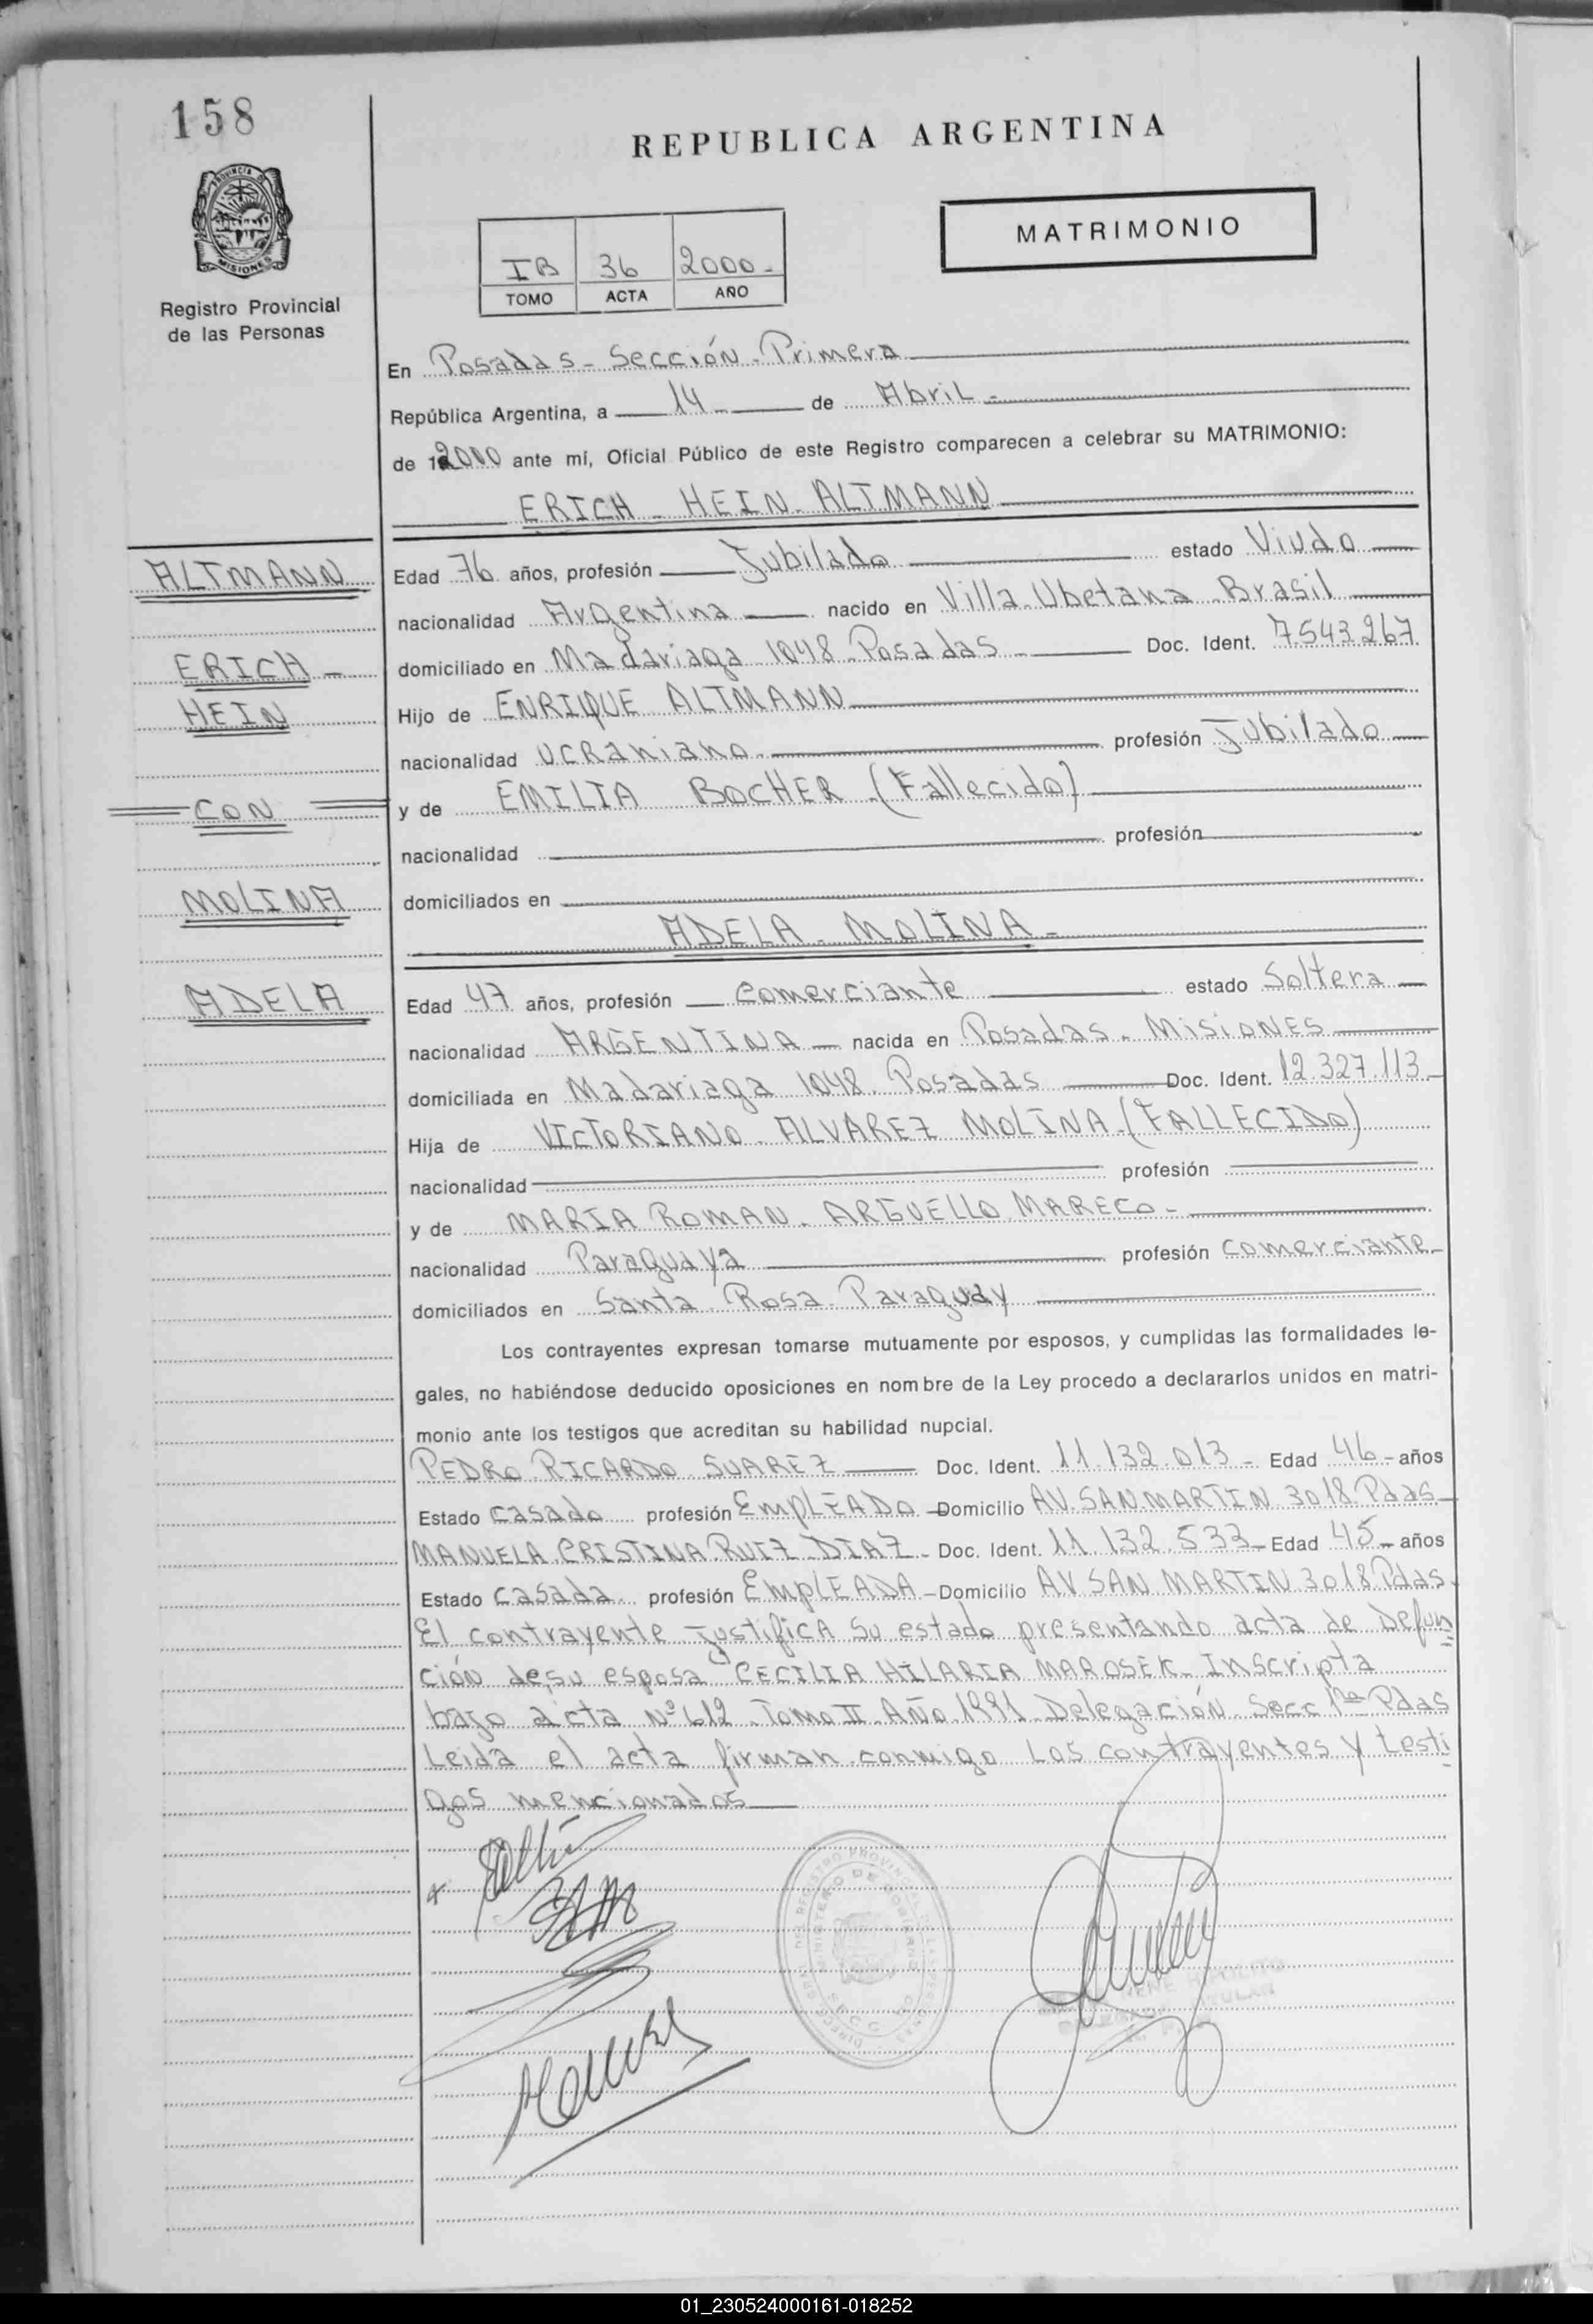 158
REPUBLICA ARGENTINA
PROVINCIA DE
MISIONES
Registro Provincial
de las Personas
MATRIMONIO
IB 36 2000-
TOMO ACTA AÑO
En Posadas - Sección - Primera
República Argentina, a 14 de Abril -
de 2000 ante mí, Oficial Público de este Registro comparecen a celebrar su MATRIMONIO:
ERICH - HEIN - ALTMANN
ALTMANN
ERICH -
HEIN
CON
MOLINA
ADELA
Edad 76 años, profesión Jubilado estado Viudo
nacionalidad Argentina nacido en Villa Ubetana - Brasil
domiciliado en Madariaga 1048 - Posadas - Doc. Ident. 7.543.267
Hijo de ENRIQUE ALTMANN
nacionalidad Ucraniano profesión Jubilado
y de EMILIA BOCHER (Fallecido)
nacionalidad profesión
domiciliados en
ADELA - MOLINA -
Edad 47 años, profesión Comerciante estado Soltera
nacionalidad ARGENTINA nacida en Posadas - MisiONES
domiciliada en Madariaga 1048 - Posadas Doc. Ident. 12.327.113
Hija de VICTORIANO - ALVAREZ MOLINA - (FALLECIDO)
nacionalidad profesión
y de MARIA ROMAN - ARGUELLO MARECO -
nacionalidad Paraguaya profesión comerciante -
domiciliados en Santa Rosa - Paraguay
Los contrayentes expresan tomarse mutuamente por esposos, y cumplidas las formalidades le-
gales, no habiéndose deducido oposiciones en nombre de la Ley procedo a declararlos unidos en matri-
monio ante los testigos que acreditan su habilidad nupcial.
PEDRO RICARDO SUAREZ Doc. Ident. 11.132.013 - Edad 46 - años
Estado casado profesión EmpLEADO - Domicilio AV. SAN MARTIN 3018 Pdas -
MANUELA CRISTINA RUIZ DIAZ - Doc. Ident. 11.132.533 - Edad 45 - años
Estado casada profesión EmpLEADA - Domicilio AV SAN MARTIN 3018 Pdas.
El contrayente justifica su estado presentando acta de Defun
ción de su esposa CECILIA HILARIA MAROSEK - Inscripta
bajo acta Nº 612 - Tomo II - Año 1991 - Delegación - Secc 1ra Pdas
Leida el acta firman conmigo Los contrayentes y testi
gos mencionados
MINISTERIO DE GOBIERNO
01_230524000161-018252